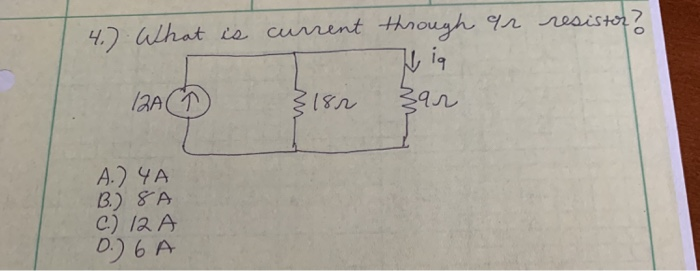 4.) What is current through 9Ω resistor?
i9
12A
18Ω
9Ω
A.) 4 A
B.) 8 A
C.) 12 A
D.) 6 A